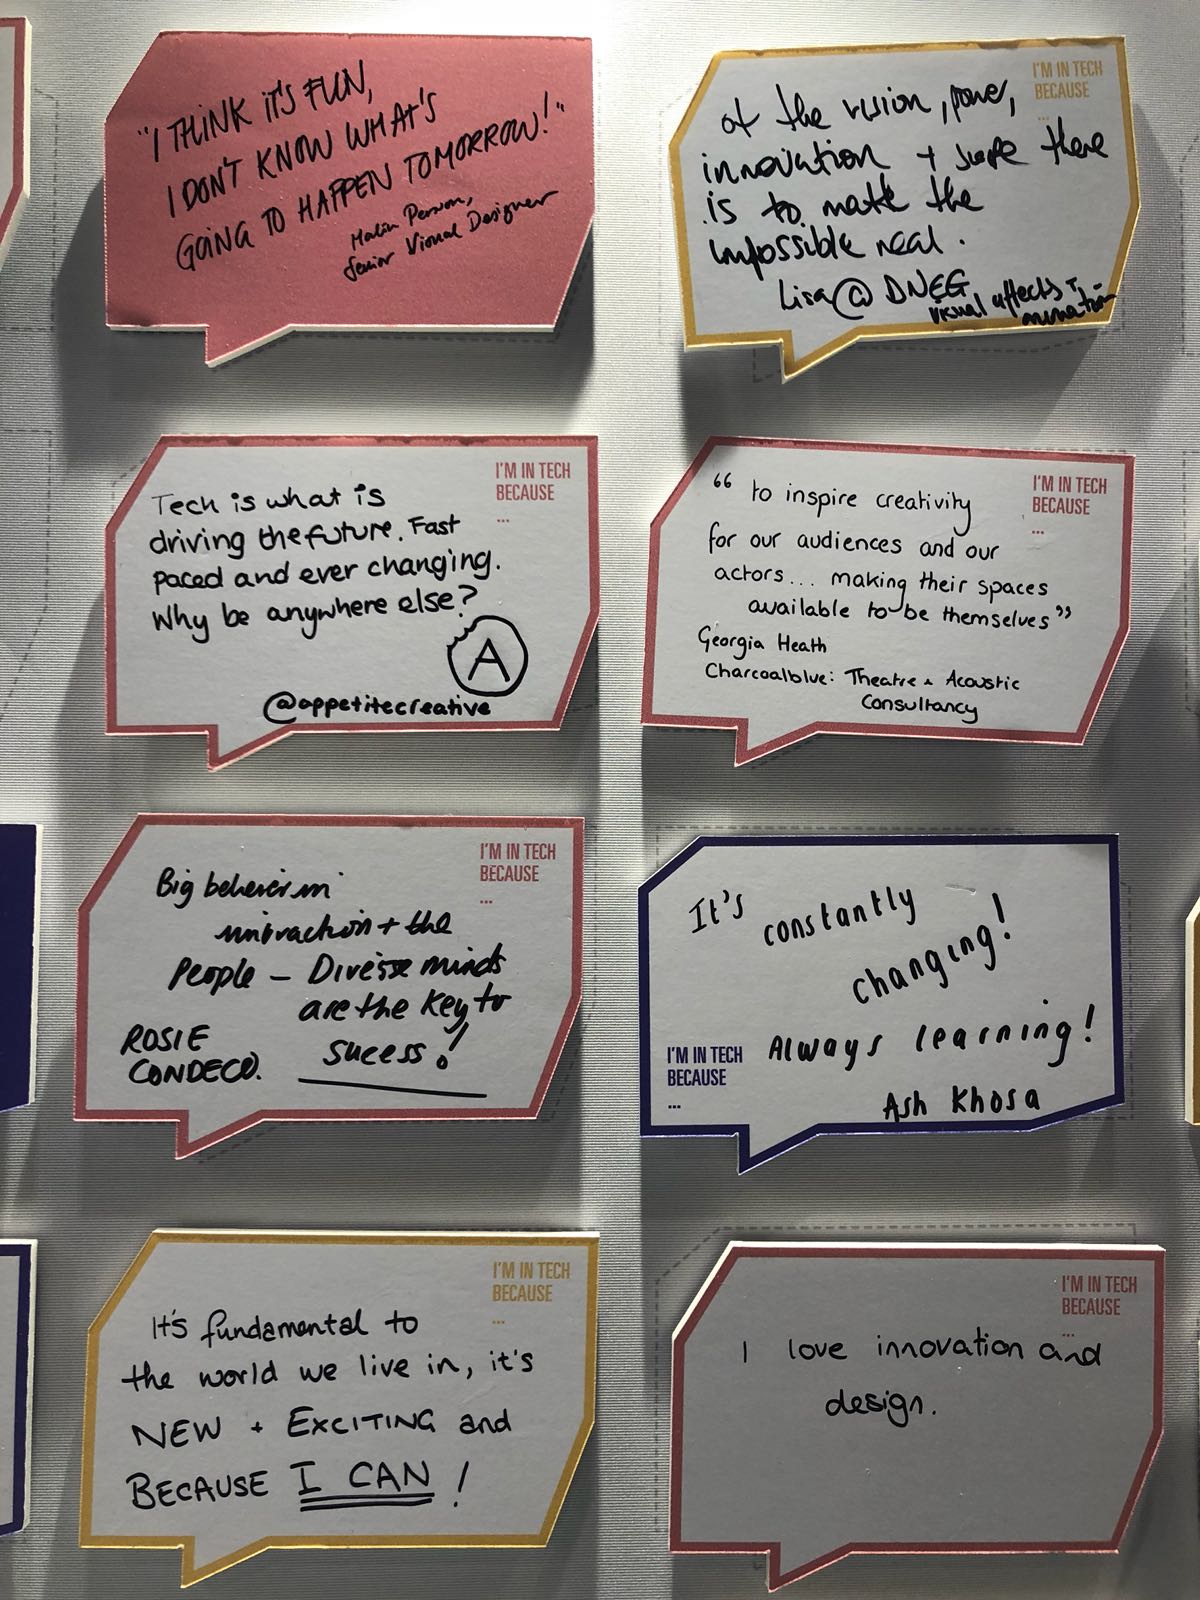 "I THINK IT'S FUN,
I DON'T KNOW WHAT'S
GOING TO HAPPEN TOMORROW!"
Malin Persson,
Senior Visual Designer
I'M IN TECH
BECAUSE
...
of the vision, power,
innovation + scope there
is to make the
impossible real.
Lisa @ DNEG
visual effects +
animation
I'M IN TECH
BECAUSE
...
Tech is what is
driving the future. Fast
paced and ever changing.
Why be anywhere else?
A
@appetitecreative
I'M IN TECH
BECAUSE
...
“ to inspire creativity
for our audiences and our
actors... making their spaces
available to be themselves”
Georgia Heath
Charcoalblue: Theatre + Acoustic
Consultancy
I'M IN TECH
BECAUSE
...
Big believer in
+ the
People – Diverse minds
are the key to
sucess!
ROSIE
CONDECO.
It's constantly
changing!
Always learning!
I'M IN TECH
BECAUSE
...
Ash Khosa
I'M IN TECH
BECAUSE
...
It's fundamental to
the world we live in, it's
NEW + EXCITING and
BECAUSE I CAN!
I'M IN TECH
BECAUSE
...
I love innovation and
design.